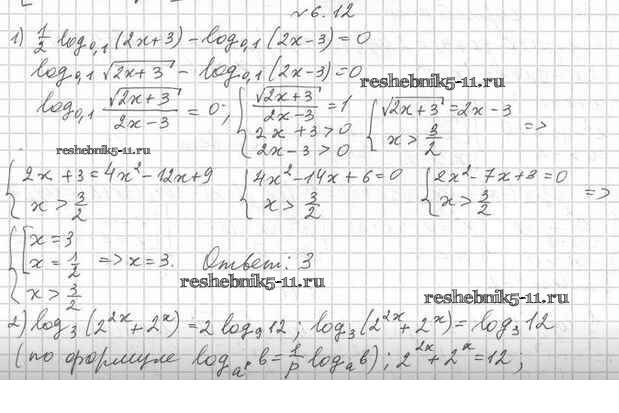 №6.12
1) 1/2 log₀,₁(2x+3) - log₀,₁(2x-3) = 0
log₀,₁ √(2x+3) - log₀,₁(2x-3) = 0
reshebnik5-11.ru
log₀,₁ √(2x+3)/(2x-3) = 0; { √(2x+3)/(2x-3) = 1 2x+3>0 2x-3>0 { √(2x+3) = 2x-3 x > 3/2 =>
reshebnik5-11.ru
{ 2x+3 = 4x²-12x+9 x > 3/2 { 4x²-14x+6=0 x > 3/2 { 2x²-7x+3=0 x > 3/2 =>
{ [ x = 3 x = 1/2 x > 3/2 => x = 3. Ответ: 3
reshebnik5-11.ru
reshebnik5-11.ru
2) log₃(2²ˣ+2ˣ) = 2 log₉12; log₃(2²ˣ+2ˣ) = log₃12
(по формуле log_aᵖ b = 1/p log_a b); 2²ˣ+2ˣ=12;